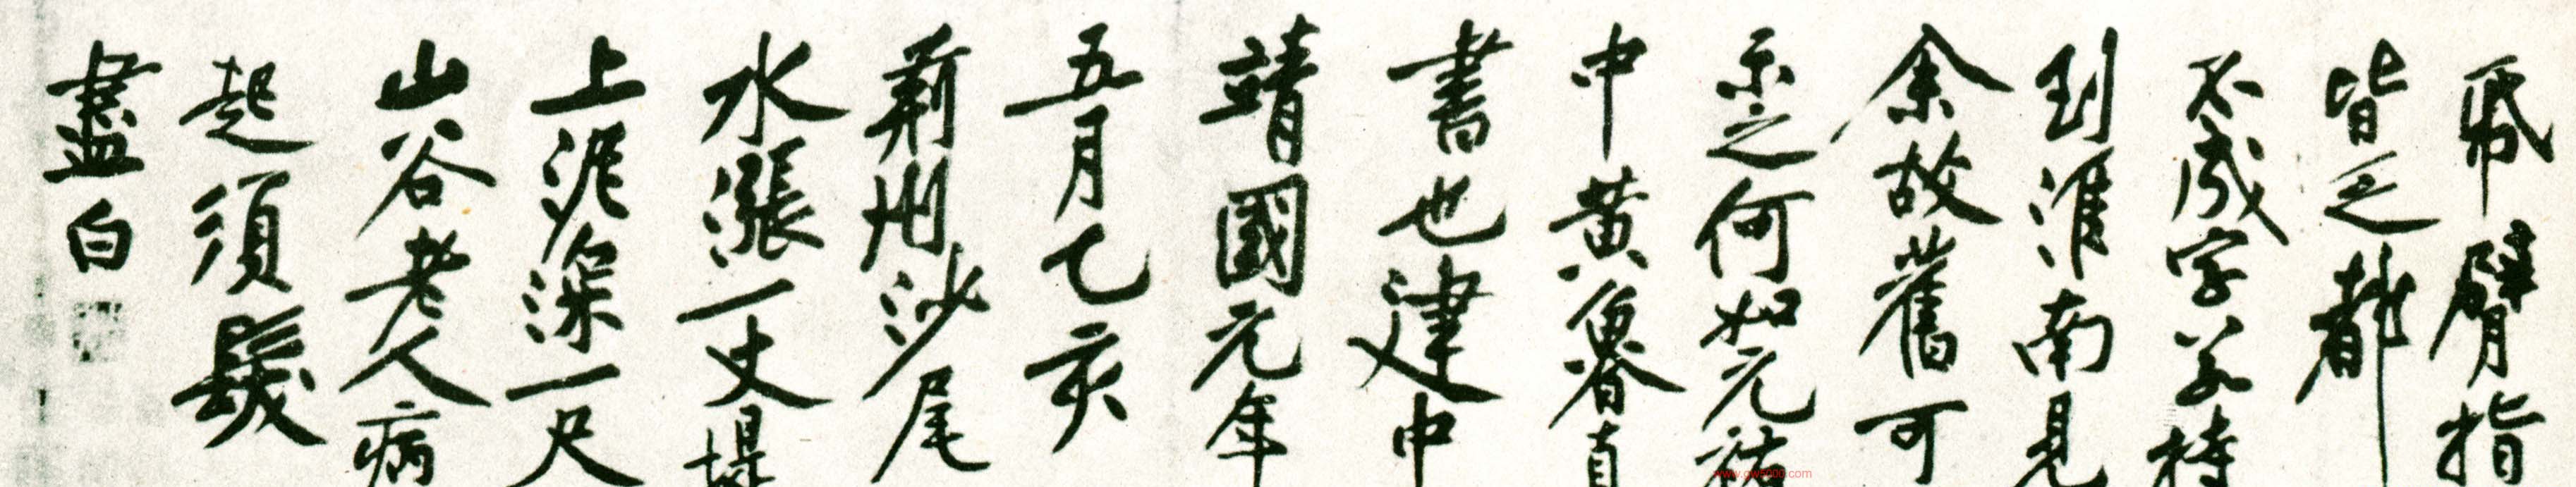 紙臂指
皆乏都
不成字若持
到淮南見
余故舊可
示之何如元祐
中黄魯直
書也建中
靖國元年
五月乙亥
荊州沙尾
水漲一丈堤
上泥深一尺
山谷老人病
起須髮
盡白